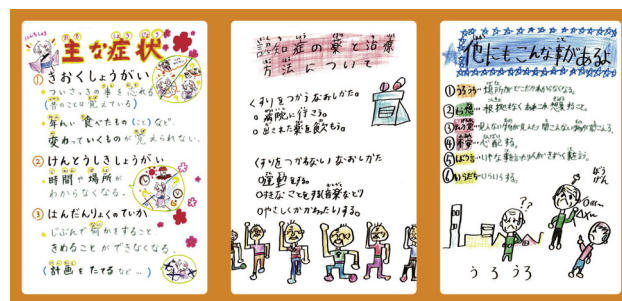 主な症状
① きおくしょうがい
・ついさっきの事を忘れる
(昔のことは覚えている)
・年れい 食べたもの(こと)など
変わっていくものが覚えられない。
② けんとうしきしょうがい
・時間や場所が
わからなくなる。
③ はんだんりょくのていか
・じぶんで何かをすること
きめることができなくなる。
(計画をたてるなど…)
認知症の薬と治療
方法について
くすりをつかうなおしかた。
○病院に行こう。
○出された薬を飲もう。
くすりをつかわないなおしかた
○運動をする。
○すきなことをする(音楽など)
○やさしくかかわったりする。
他にもこんな事があるよ
① うろうろ…場所がどこだかわからなくなる。
② もう想…
③ げん覚…見えない物が見えたり聞こえない物が聞こえる。
④ 不安…心配する。
⑤ ぼう言
⑥ いらだち…いらいらする。
ぼう
げん
うろうろ